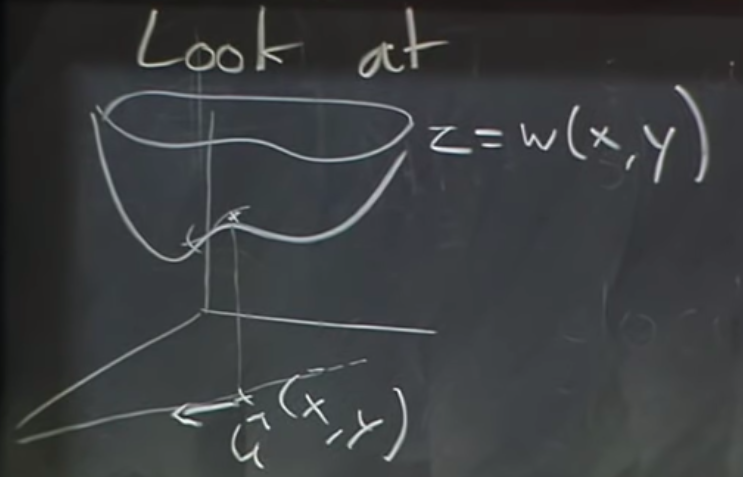 Look at
z = w(x,y)
(x,y)
û